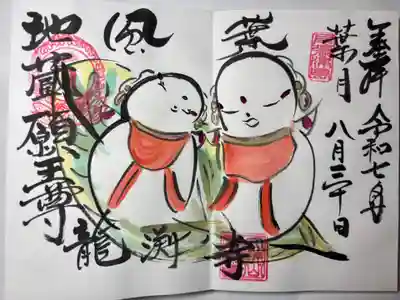 奉拝 令和七年
葉月 八月三十日
風
地蔵願王尊
龍渕寺